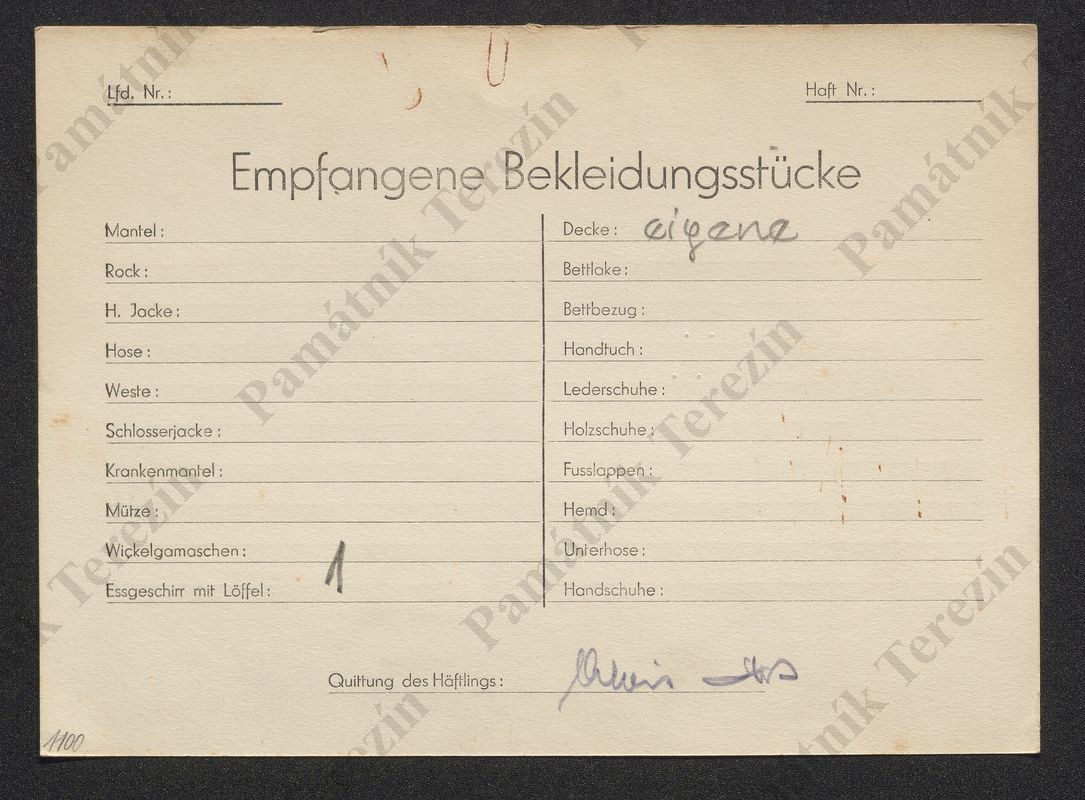 Lfd. Nr.:
Haft Nr.:
Empfangene Bekleidungsstücke
Mantel:
Rock:
H. Jacke:
Hose:
Weste:
Schlosserjacke:
Krankenmantel:
Mütze:
Wickelgamaschen:
Essgeschirr mit Löffel: 1
Decke: eigene
Bettlake:
Bettbezug:
Handtuch:
Lederschuhe:
Holzschuhe:
Fusslappen:
Hemd:
Unterhose:
Handschuhe:
Quittung des Häftlings:
1100
Památník Terezín